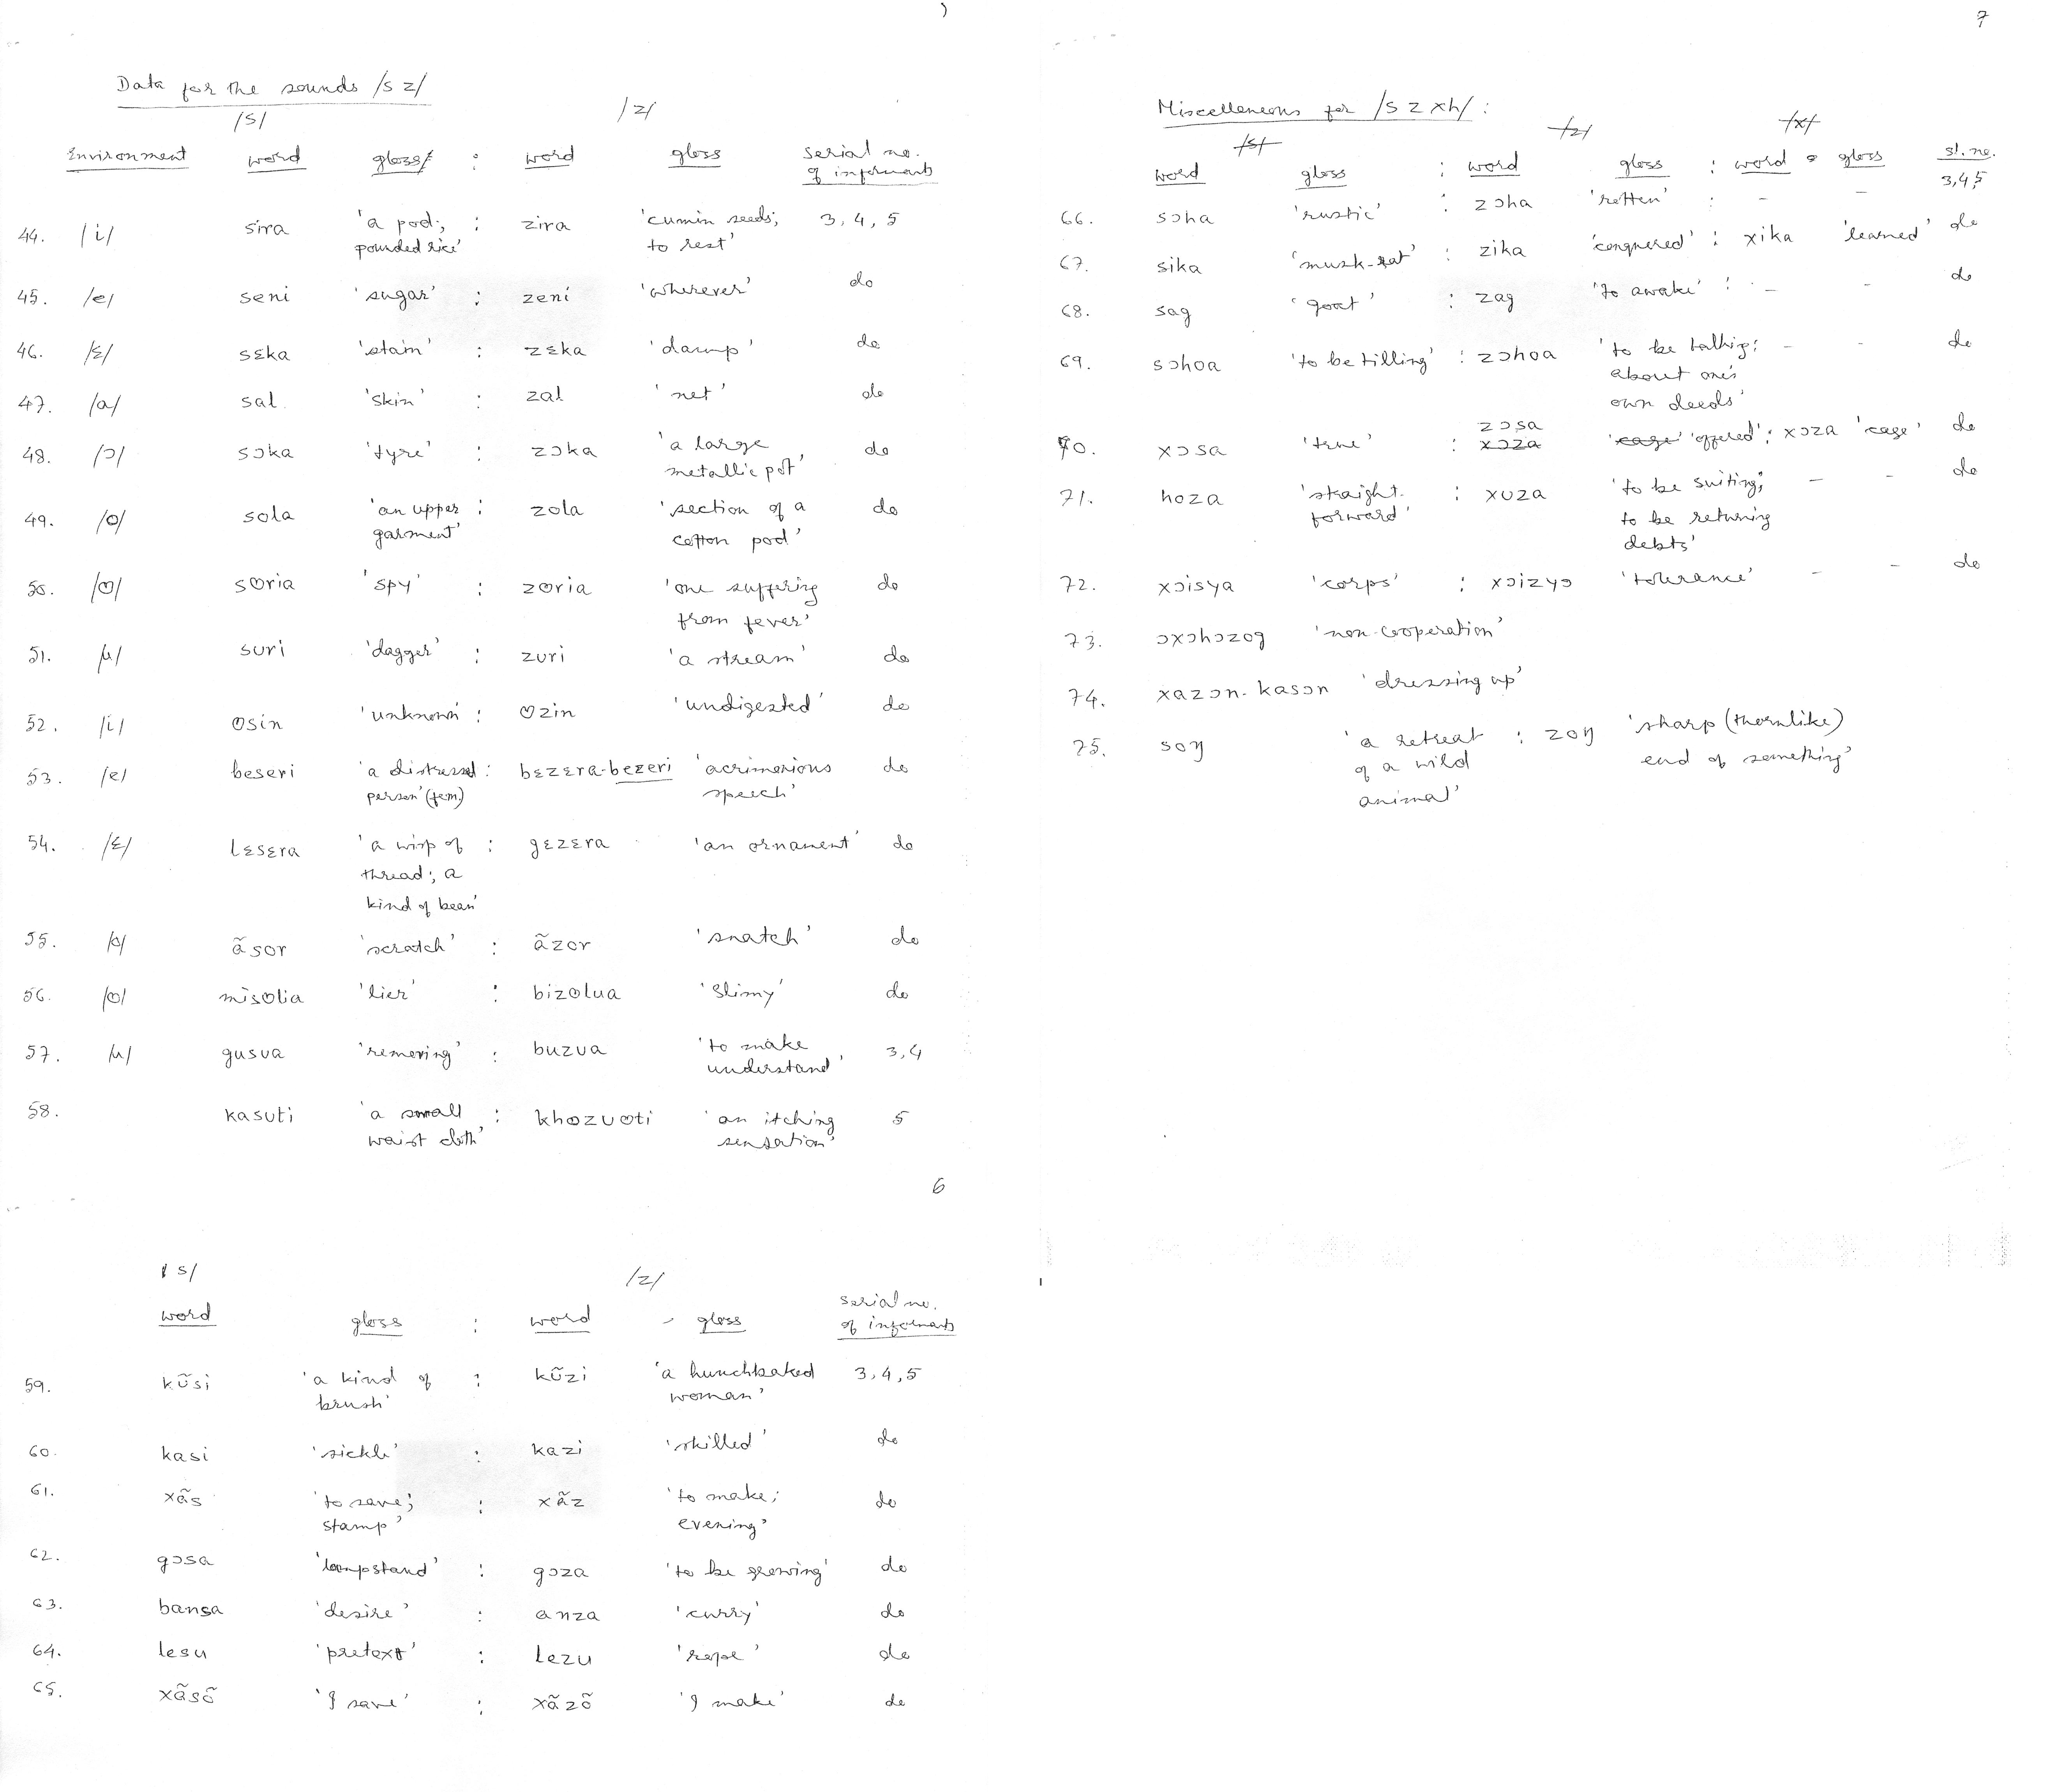 Data for the sounds /s z/
/s/ /z/
Environment word gloss : word gloss serial no. of informants
44. /i/ sira 'a pod; : zira 'cumin seeds; 3, 4, 5
pounded rice' to rest'
45. /e/ seni 'sugar' : zeni 'wherever' do
46. /ɛ/ sɛka 'stain' : zɛka 'damp' do
47. /a/ sal 'skin' : zal 'net' do
48. /ɔ/ sɔka 'tyre' : zɔka 'a large do
metallic pot'
49. /o/ sola 'an upper : zola 'section of a do
garment' cotton pod'
50. /ʊ/ sʊria 'spy' : zʊria 'one suffering do
from fever'
51. /u/ suri 'dagger' : zuri 'a stream' do
52. /i/ ʊsin 'unknown' : ʊzin 'undigested' do
53. /e/ beseri 'a distressed : bɛzɛra-bezeri 'acrimonious do
person' (fem.) speech'
54. /ɛ/ lɛsɛra 'a wisp of : gɛzɛra 'an ornament' do
thread; a
kind of bean'
55. /o/ ãsor 'scratch' : ãzor 'snatch' do
56. /ʊ/ misʊlia 'lier' : bizʊlua 'slimy' do
57. /u/ gusua 'removing' : buzua 'to make 3,4
understand'
58. kasuti 'a small : khozuʊti 'an itching 5
waist cloth' sensation'
6
/s/ /z/
word gloss : word - gloss serial no. of informants
59. kũsi 'a kind of : kũzi 'a hunchbaked 3,4,5
brush' woman'
60. kasi 'sickle' : kazi 'skilled' do
61. xãs 'to save; : xãz 'to make; do
stamp' evening'
62. gɔsa 'lampstand' : gɔza 'to be growing' do
63. bansa 'desire' : anza 'curry' do
64. lesu 'pretext' : lezu 'rope' do
65. xãsõ 'I save' : xãzõ 'I make' do
7
Miscelleneous for /s z x h/ :
/s/ /z/ /x/
word gloss : word gloss : word gloss sl. no.
3,4,5
66. sɔha 'rustic' : zɔha 'rotten' : - -
67. sika 'musk-rat' : zika 'conquered' : xika 'learned' do
68. sag 'goat' : zag 'to awake' : - - do
69. sɔhoa 'to be tilling' : zɔhoa 'to be talking: - - do
about one's
own deeds'
zɔsa
70. xɔsa 'true' : xɔza 'cage' 'offered' : xɔza 'cage' do
71. hoza 'straight. : xuza 'to be suiting; - - do
forward' to be returning
debts'
72. xɔisya 'corps' : xɔizyɔ 'tolerance' - - do
73. ɔxɔhɔzog 'non-cooperation'
74. xazɔn-kasɔn 'dressing up'
75. soŋ 'a retreat : zoŋ 'sharp (thornlike)
of a wild end of something'
animal'